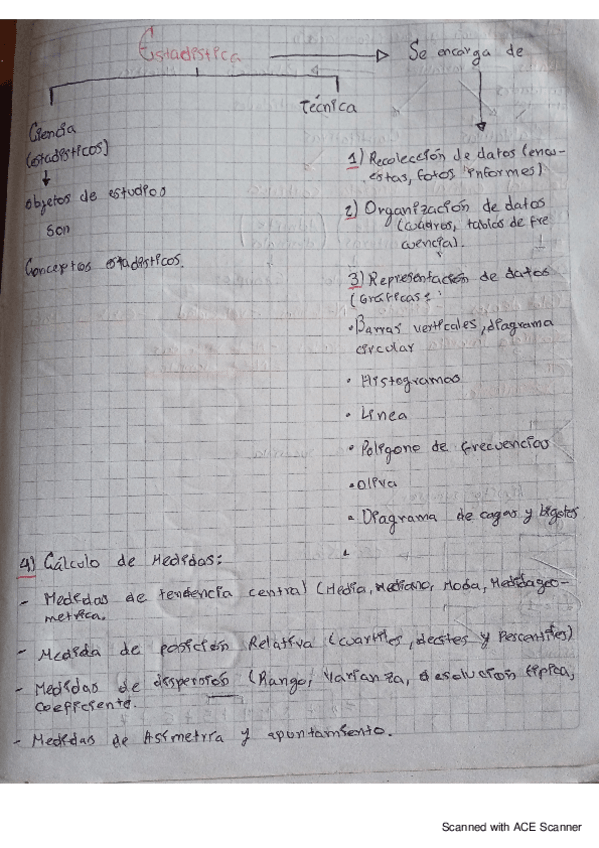 Estadística
Se encarga de
Técnica
Ciencia
(estadísticos)
Objetos de estudios
son
Conceptos estadísticos.
1) Recolección de datos (encu-
estas, fotos informes)
2) Organización de datos
(cuadros, tablas de fre
cuencia).
3) Representación de datos
(Gráficas:
• Barras verticales, diagrama
circular
• Histogramas
• Linea
• Poligono de frecuencias
• Ojiva
• Diagrama de cagas y bigotes
4) Cálculo de Medidas:
- Medidas de tendencia central (Media, Mediana, Moda, Media geo-
metrica.
- Medida de posición Relativa (cuartiles, deciles y Percentiles)
- Medidas de dispersión (Rango, Varianza, típica,
coeficiente.
- Medidas de Asimetría y apuntamiento.
Scanned with ACE Scanner